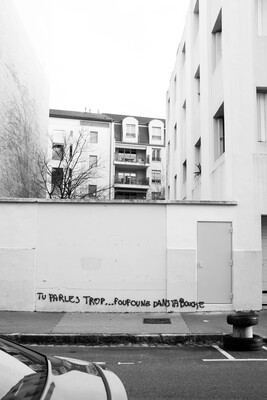 TU PARLES TROP...POUPOUNE DANS TA BOUCHE